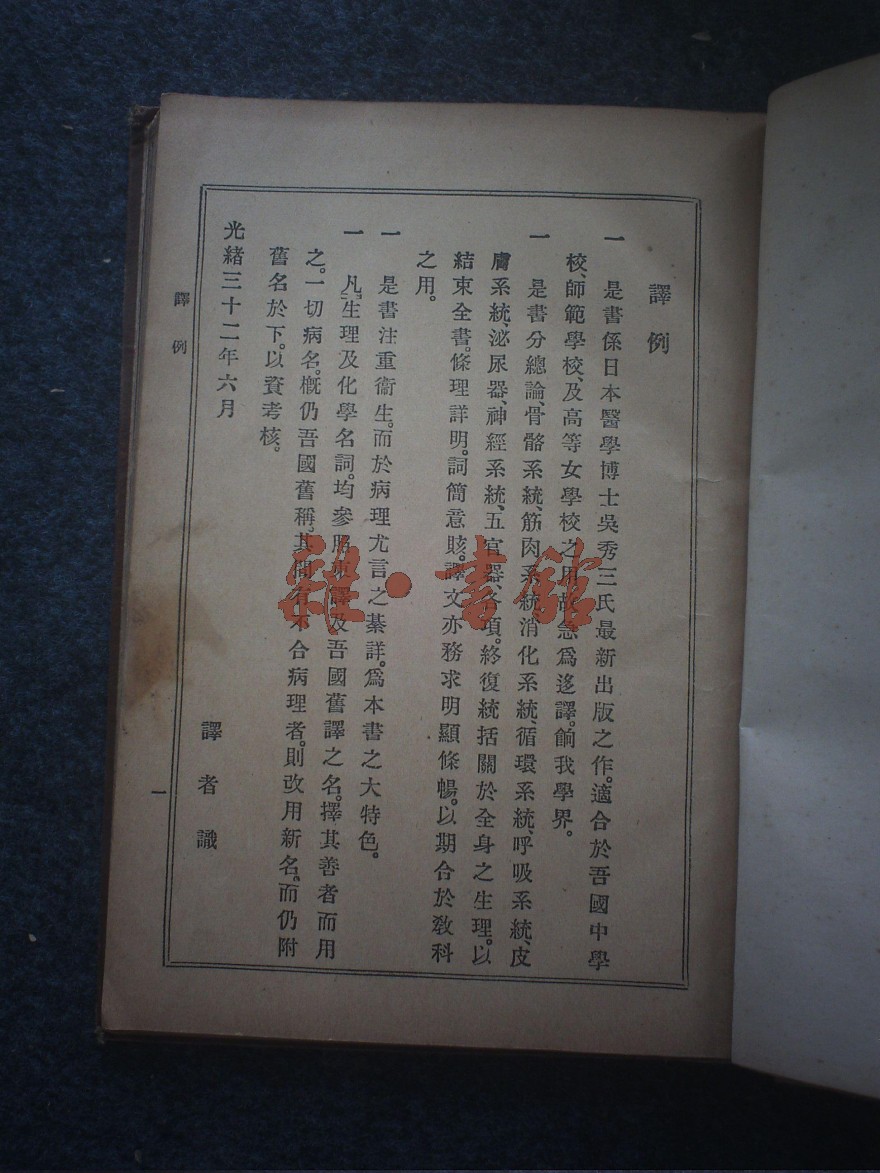 譯例
一 是書係日本醫學博士吳秀三氏最新出版之作。適合於吾國中學
校、師範學校、及高等女學校之用。故急爲迻譯。餉我學界。
一 是書分總論、骨骼系統、筋肉系統、消化系統、循環系統、呼吸系統、皮
膚系統、泌尿器、神經系統、五官器、各項。終復統括關於全身之生理。以
結束全書。條理詳明。詞簡意賅。譯文亦務求明顯條暢。以期合於敎科
之用。
一 是書注重衞生。而於病理尤言之綦詳。爲本書之大特色。
一 凡生理及化學名詞。均參照東譯及吾國舊譯之名。擇其善者而用
之。一切病名。槪仍吾國舊稱。其間有不合病理者。則改用新名。而仍附
舊名於下。以資考核。
光緖三十二年六月
譯者識
譯例
一
雜·書館